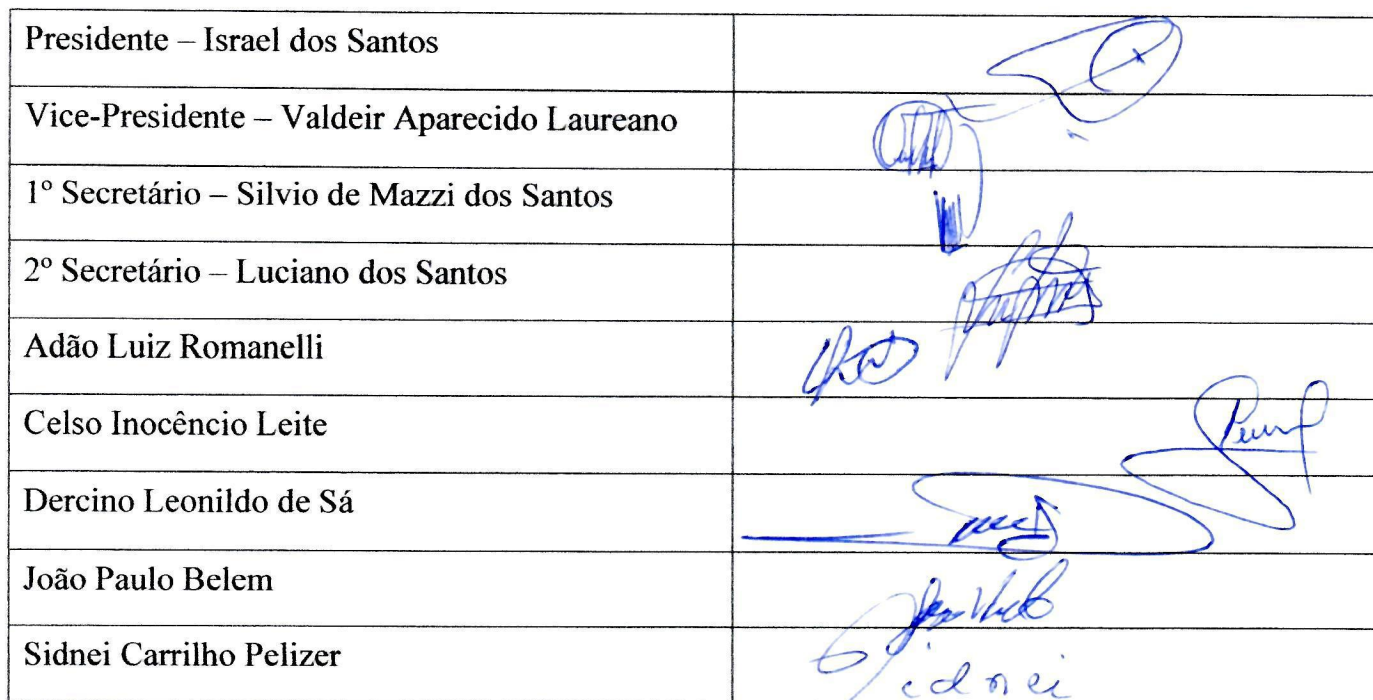 Presidente – Israel dos Santos
Vice-Presidente – Valdeir Aparecido Laureano
1º Secretário – Silvio de Mazzi dos Santos
2º Secretário – Luciano dos Santos
Adão Luiz Romanelli
Celso Inocêncio Leite
Dercino Leonildo de Sá
João Paulo Belem
Sidnei Carrilho Pelizer
Sidnei